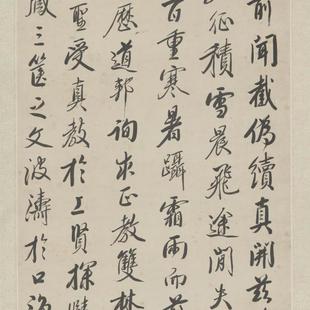 前聞截偽續真開茲
征積雪晨飛途閒失
百重寒暑躡霜雨而前
歷道邦詢求正教雙林
聖受真教於上賢探賾
藏三篋之文波濤於口海